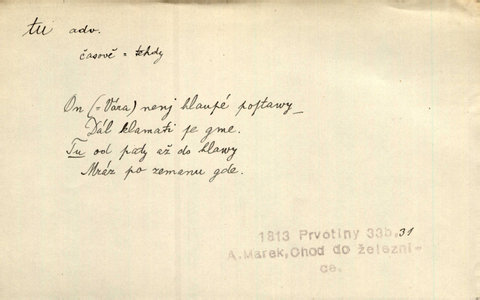 tu adv.
časově = tehdy
On (= Vára) nenj hlaupé postawy
Dál klamati je gme.
Tu od paty až do hlawy
Mráz po zemanu gde.
1813 Prvotiny 33b,31
A.Marek,Chod do železni-
ce.